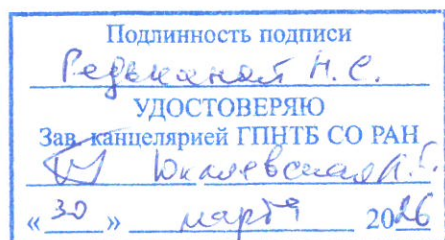 Подлинность подписи
Редькиной Н.С.
УДОСТОВЕРЯЮ
Зав. канцелярией ГПНТБ СО РАН
« 30 » марта 2026